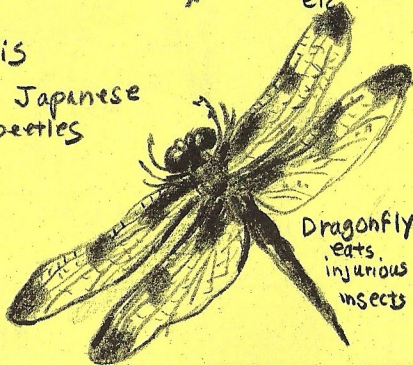 etc
is
Japanese
beetles
Dragonfly
eats
injurious
insects